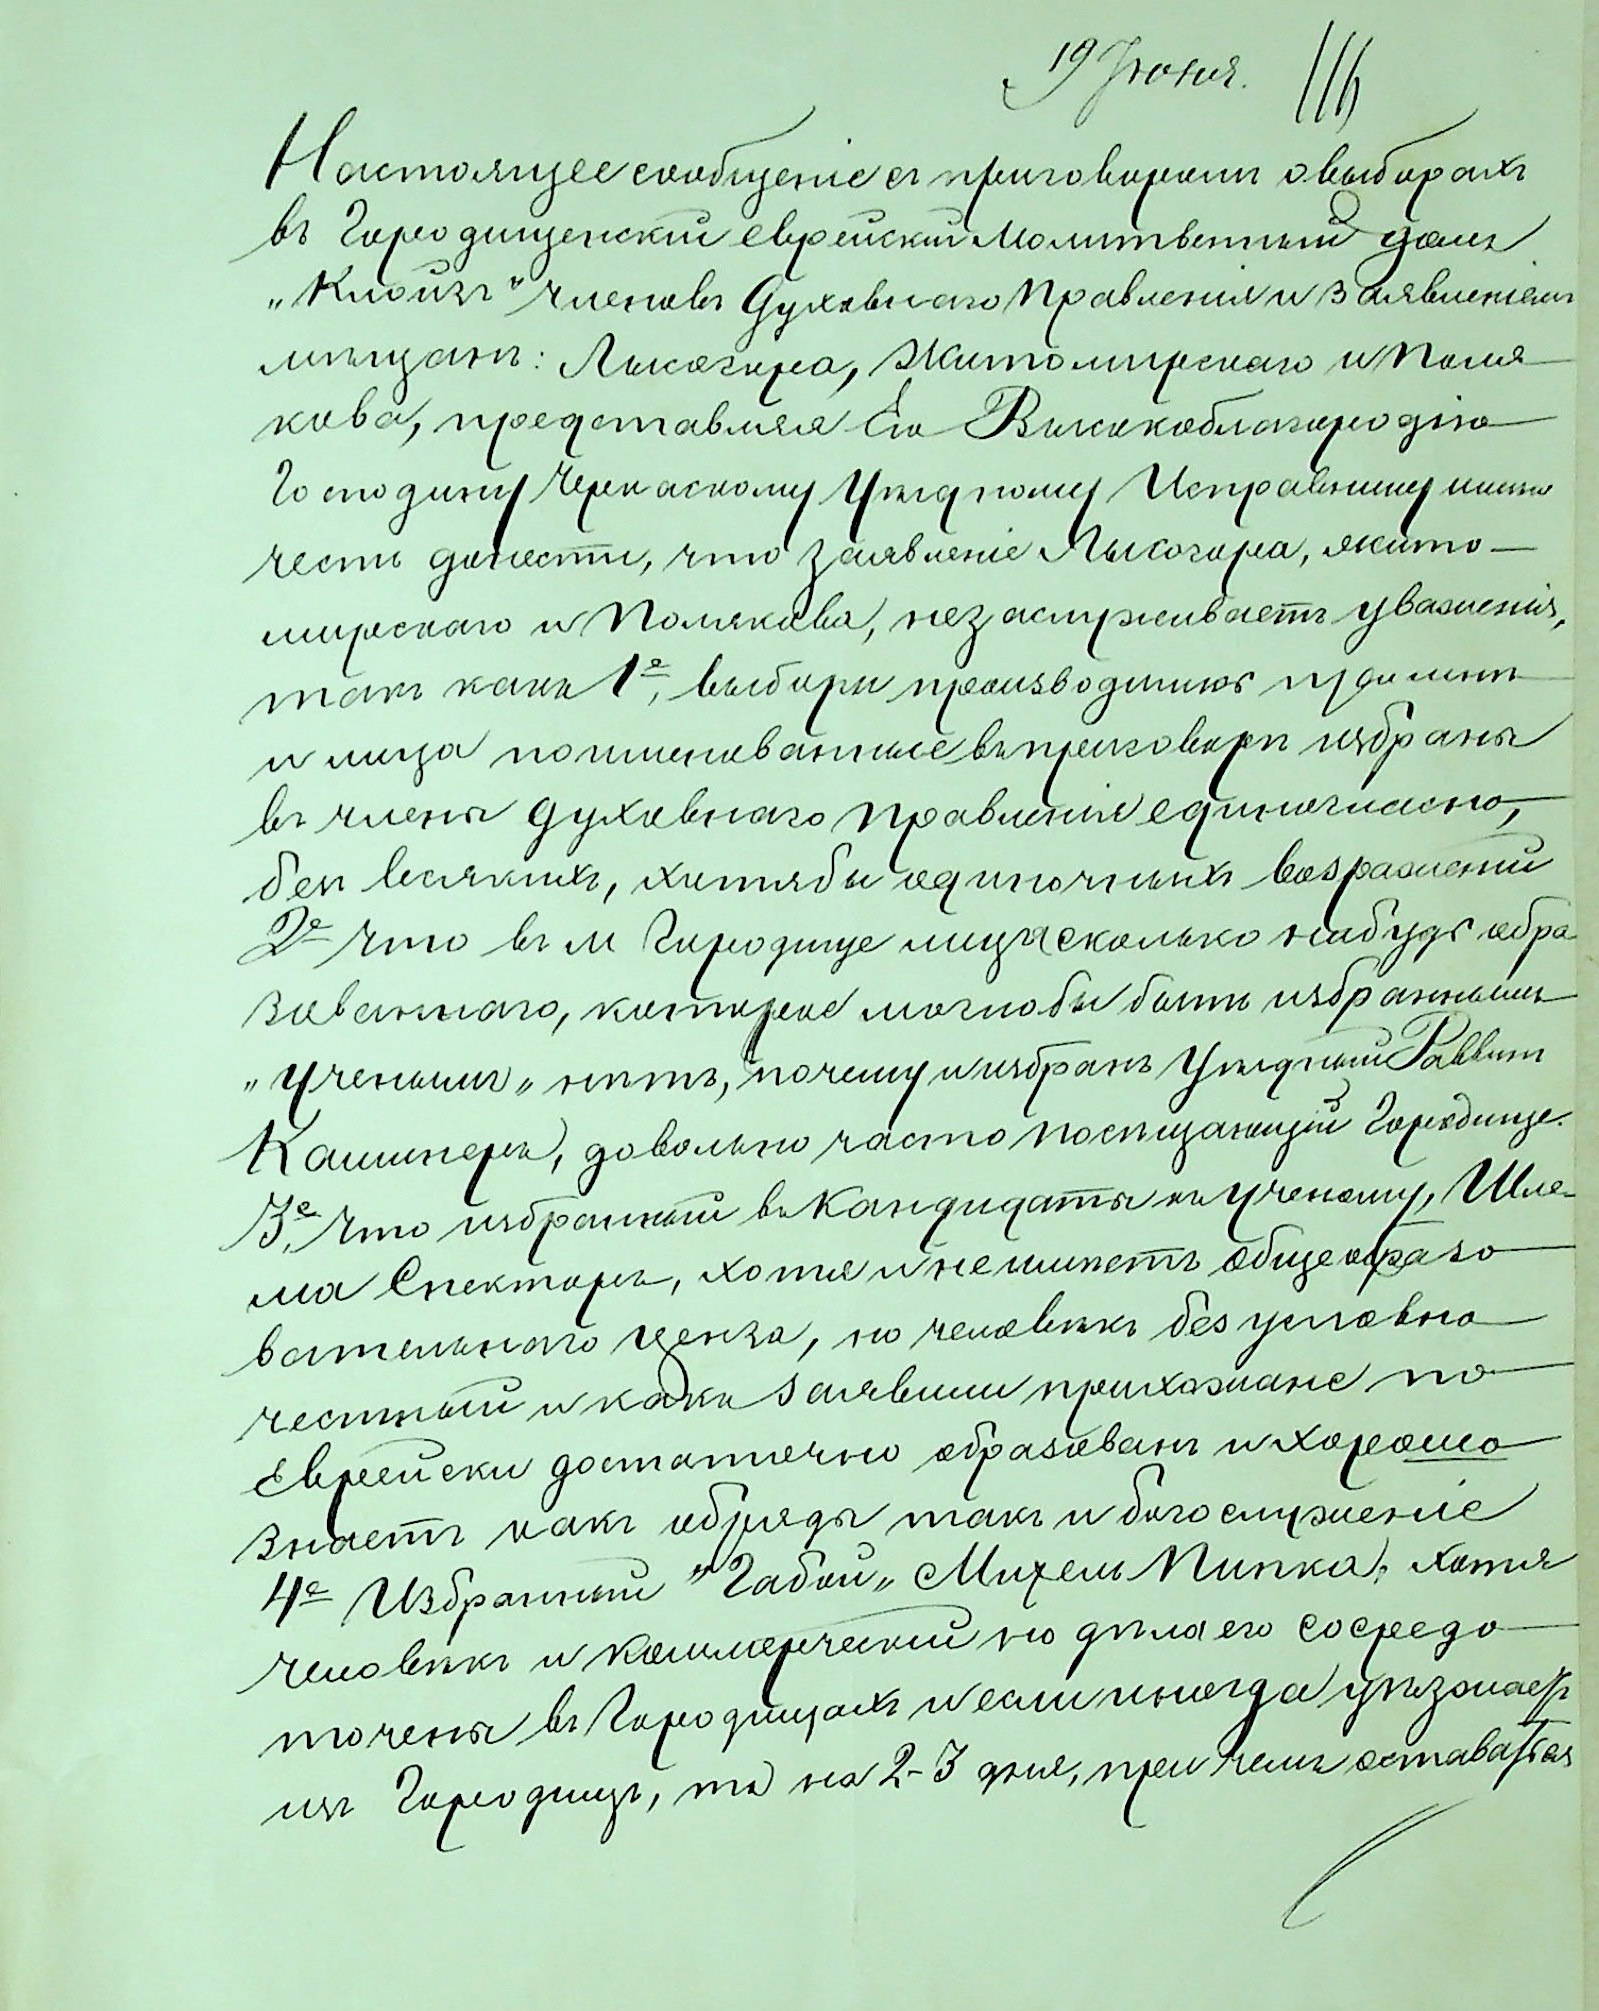 19 Іюня.
Настоящее сообщеніе съ приговоромъ о выборахъ
въ Городищенскій еврейскій Молитвенный домъ
„Клойзъ" членовъ Духовнаго Правленія и заявленіемъ
мѣщанъ: Лысогора, Житомирскаго и Поля-
кова, представляя Его Высокоблагородію
Господину Черкаскому Уѣздному Исправнику имѣю
честь донести, что заявленіе Лысогора, Жито-
мирскаго и Полякова, незаслуживаетъ уваженія,
такъ какъ 1е, выборы производились
и лица поименованные въ приговорѣ избраны
въ члены Духовнаго Правленія единогласно,
безъ всякихъ, хотябы единочныхъ возраженій
2е что въ м Городище лица сколько нибудь обра
зованнаго, которое моглобы быть избраннымъ
„Ученымъ„ нѣтъ, почему и избранъ Уѣздный Раввинъ
Кашперъ, довольно часто посѣщающій Городище.
3е, что избранный въ Кандидаты къ Ученому, Шле-
ма Спекторъ, хотя и не имѣетъ общеобразо
вательнаго ценза, но человѣкъ безусловно
честный и какъ заявили прихожане по
Еврейски достаточно образованъ и хорошо
знаетъ какъ обряды такъ и богослуженіе
4е Избранный „Габой„ Михель Пипка, хотя
человѣкъ и коммерческій но дѣла его сосредо
точены въ Городищахъ и если иногда уѣзжаетъ
изъ Городищъ, то на 2-3 дня, при чемъ оставаться